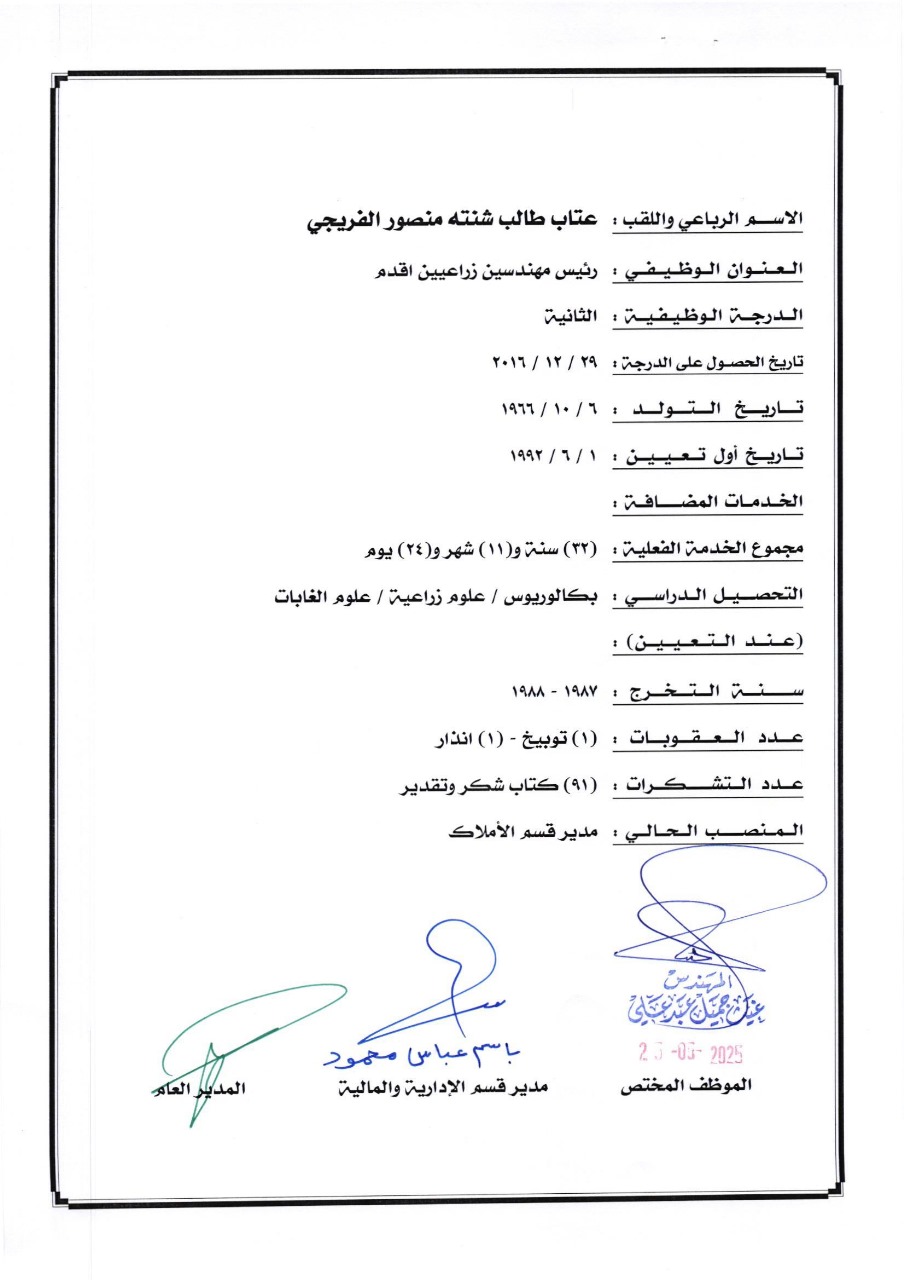 الاسم الرباعي واللقب : عتاب طالب شنته منصور الفريجي
العنوان الوظيفي : رئيس مهندسين زراعيين اقدم
الدرجة الوظيفية : الثانية
تاريخ الحصول على الدرجة : ٢٩ / ١٢ / ٢٠١٦
تاريخ التولد : ٦ / ١٠ / ١٩٦٦
تاريخ أول تعيين : ١ / ٦ / ١٩٩٢
الخدمات المضافة :
مجموع الخدمة الفعلية : (٣٢) سنة و(١١) شهر و(٢٤) يوم
التحصيل الدراسي : بكالوريوس / علوم زراعية / علوم الغابات
(عند التعيين) :
سنة التخرج : ١٩٨٧ - ١٩٨٨
عدد العقوبات : (١) توبيخ - (١) انذار
عدد التشكرات : (٩١) كتاب شكر وتقدير
المنصب الحالي : مدير قسم الأملاك
المهندس
جميل عبد علي
باسم عباس محمود
2025
الموظف المختص
مدير قسم الإدارية والمالية
المدير العام